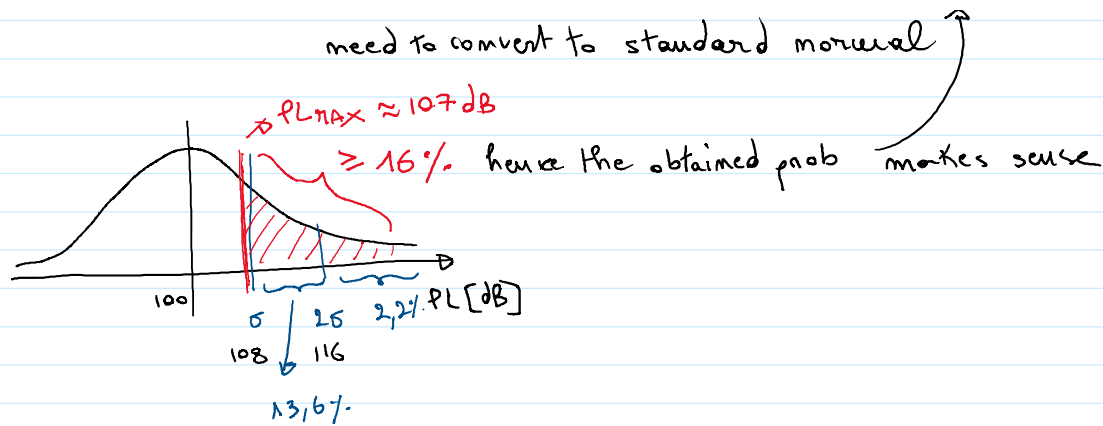 need to convert to standard normal
PLMAX ≈ 107 dB
≥ 16% hence the obtained prob makes sense
100
σ 2σ 2,2% PL [dB]
108 116
13,6%